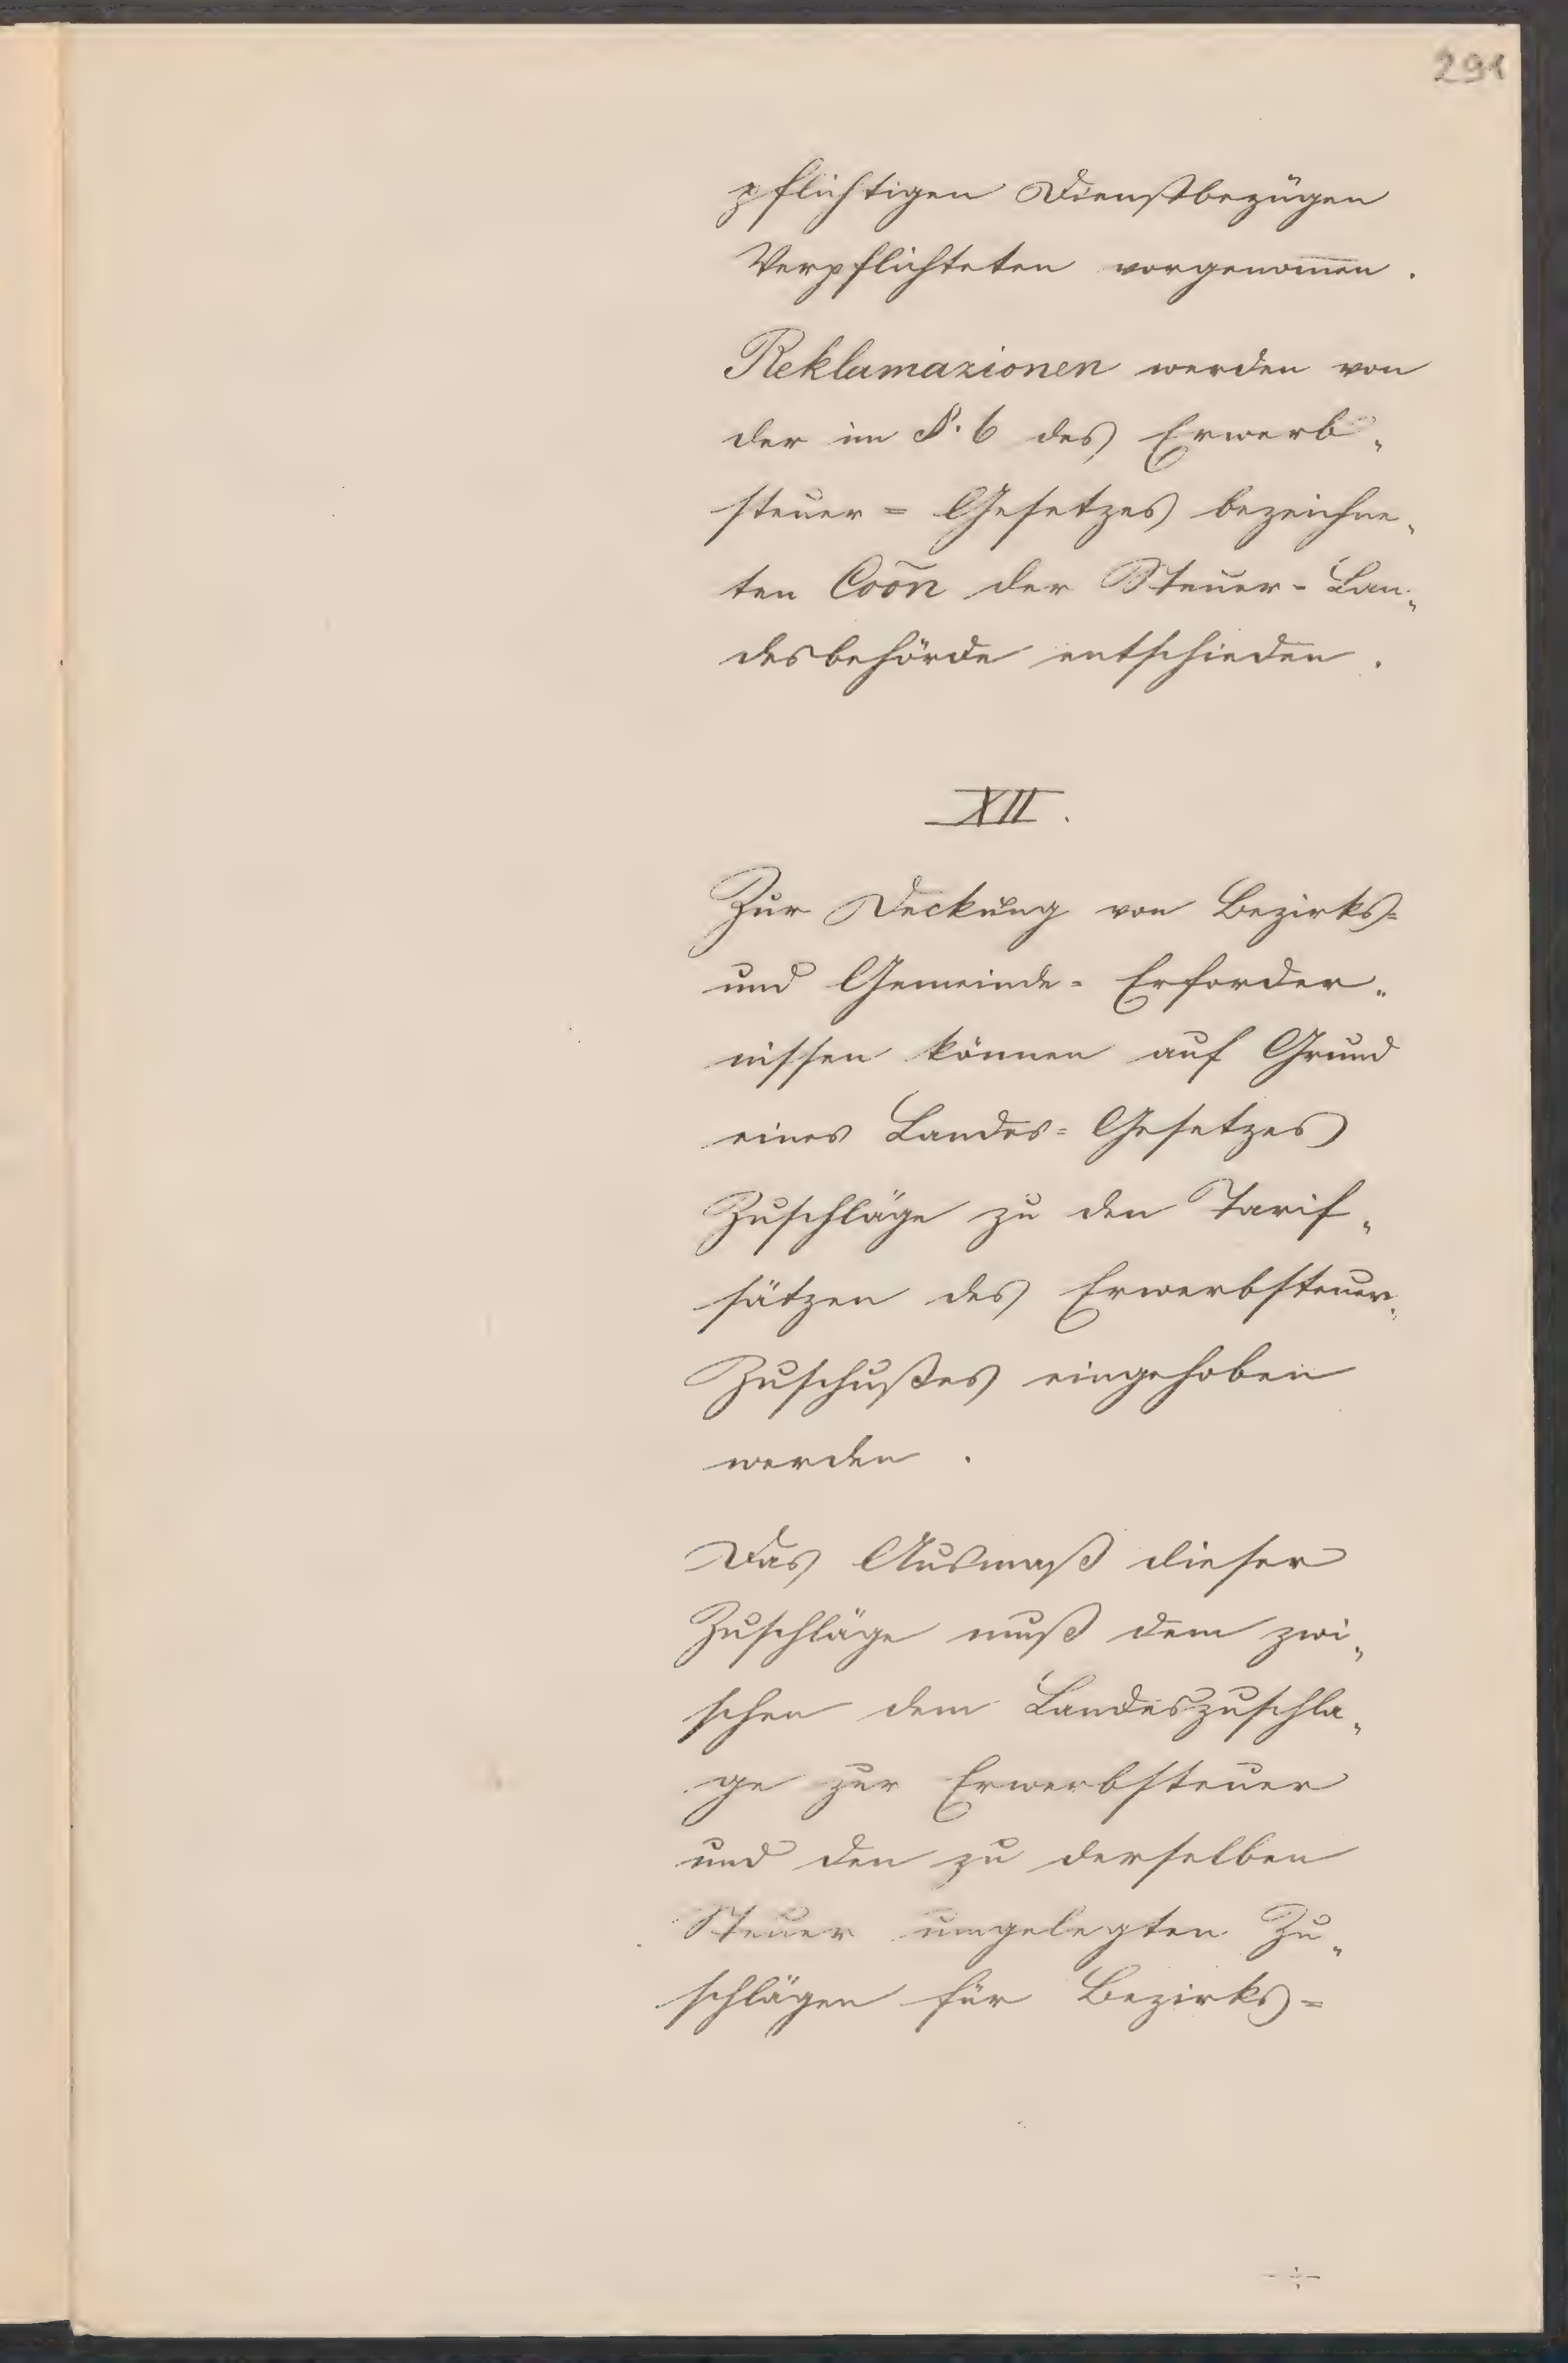 291
pflichtigen Dienstbezügen
Verpflichteten vorgenom̅en.
Reklamazionen werden von
der im §. 6 des Erwerb„
steuer = Gesetzes bezeichne„
ten Coõn der Steuer-Lan„
desbehörde entschieden.
XII.
Zur Deckung von Bezirks=
und Gemeinde= Erforder„
nissen können auf Grund
eines Landes= Gesetzes
Zuschläge zu den Tarif„
sätzen des Erwerbsteuer„
Zuschußes eingehoben
werden.
Das Ausmaß dieser
Zuschläge muß dem zwi„
schen dem Landeszuschla„
ge zur Erwerbsteuer
und den zu derselben
Steuer umgelegten Zu„
schlägen für Bezirks=
-÷-